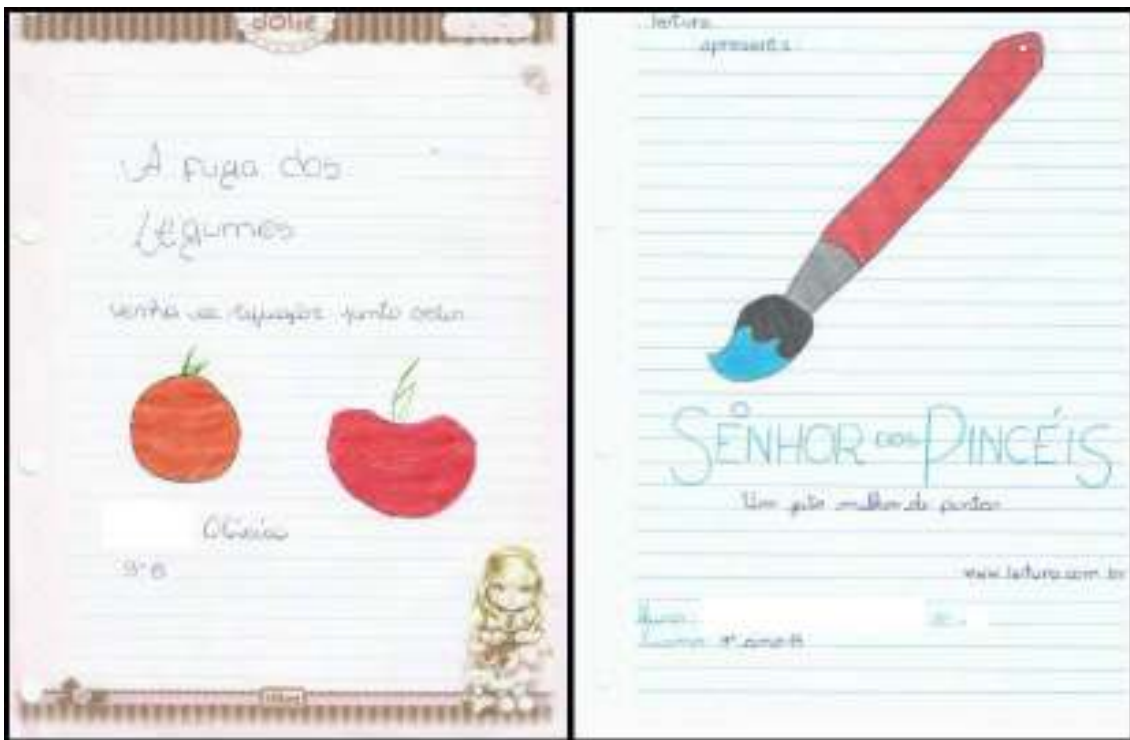 Jolie
A fuga dos
Legumes
venha se junto
9º B
leitura
apresenta:
O
SENHOR DOS PINCÉIS
Um jeito melhor de pintar
www.leitura.com.br
Aluno:
nº
9º ano A